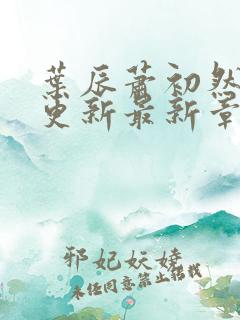 葉辰蕭初然
更新最新章
邪妃妖嬈
未经同意禁止搭载